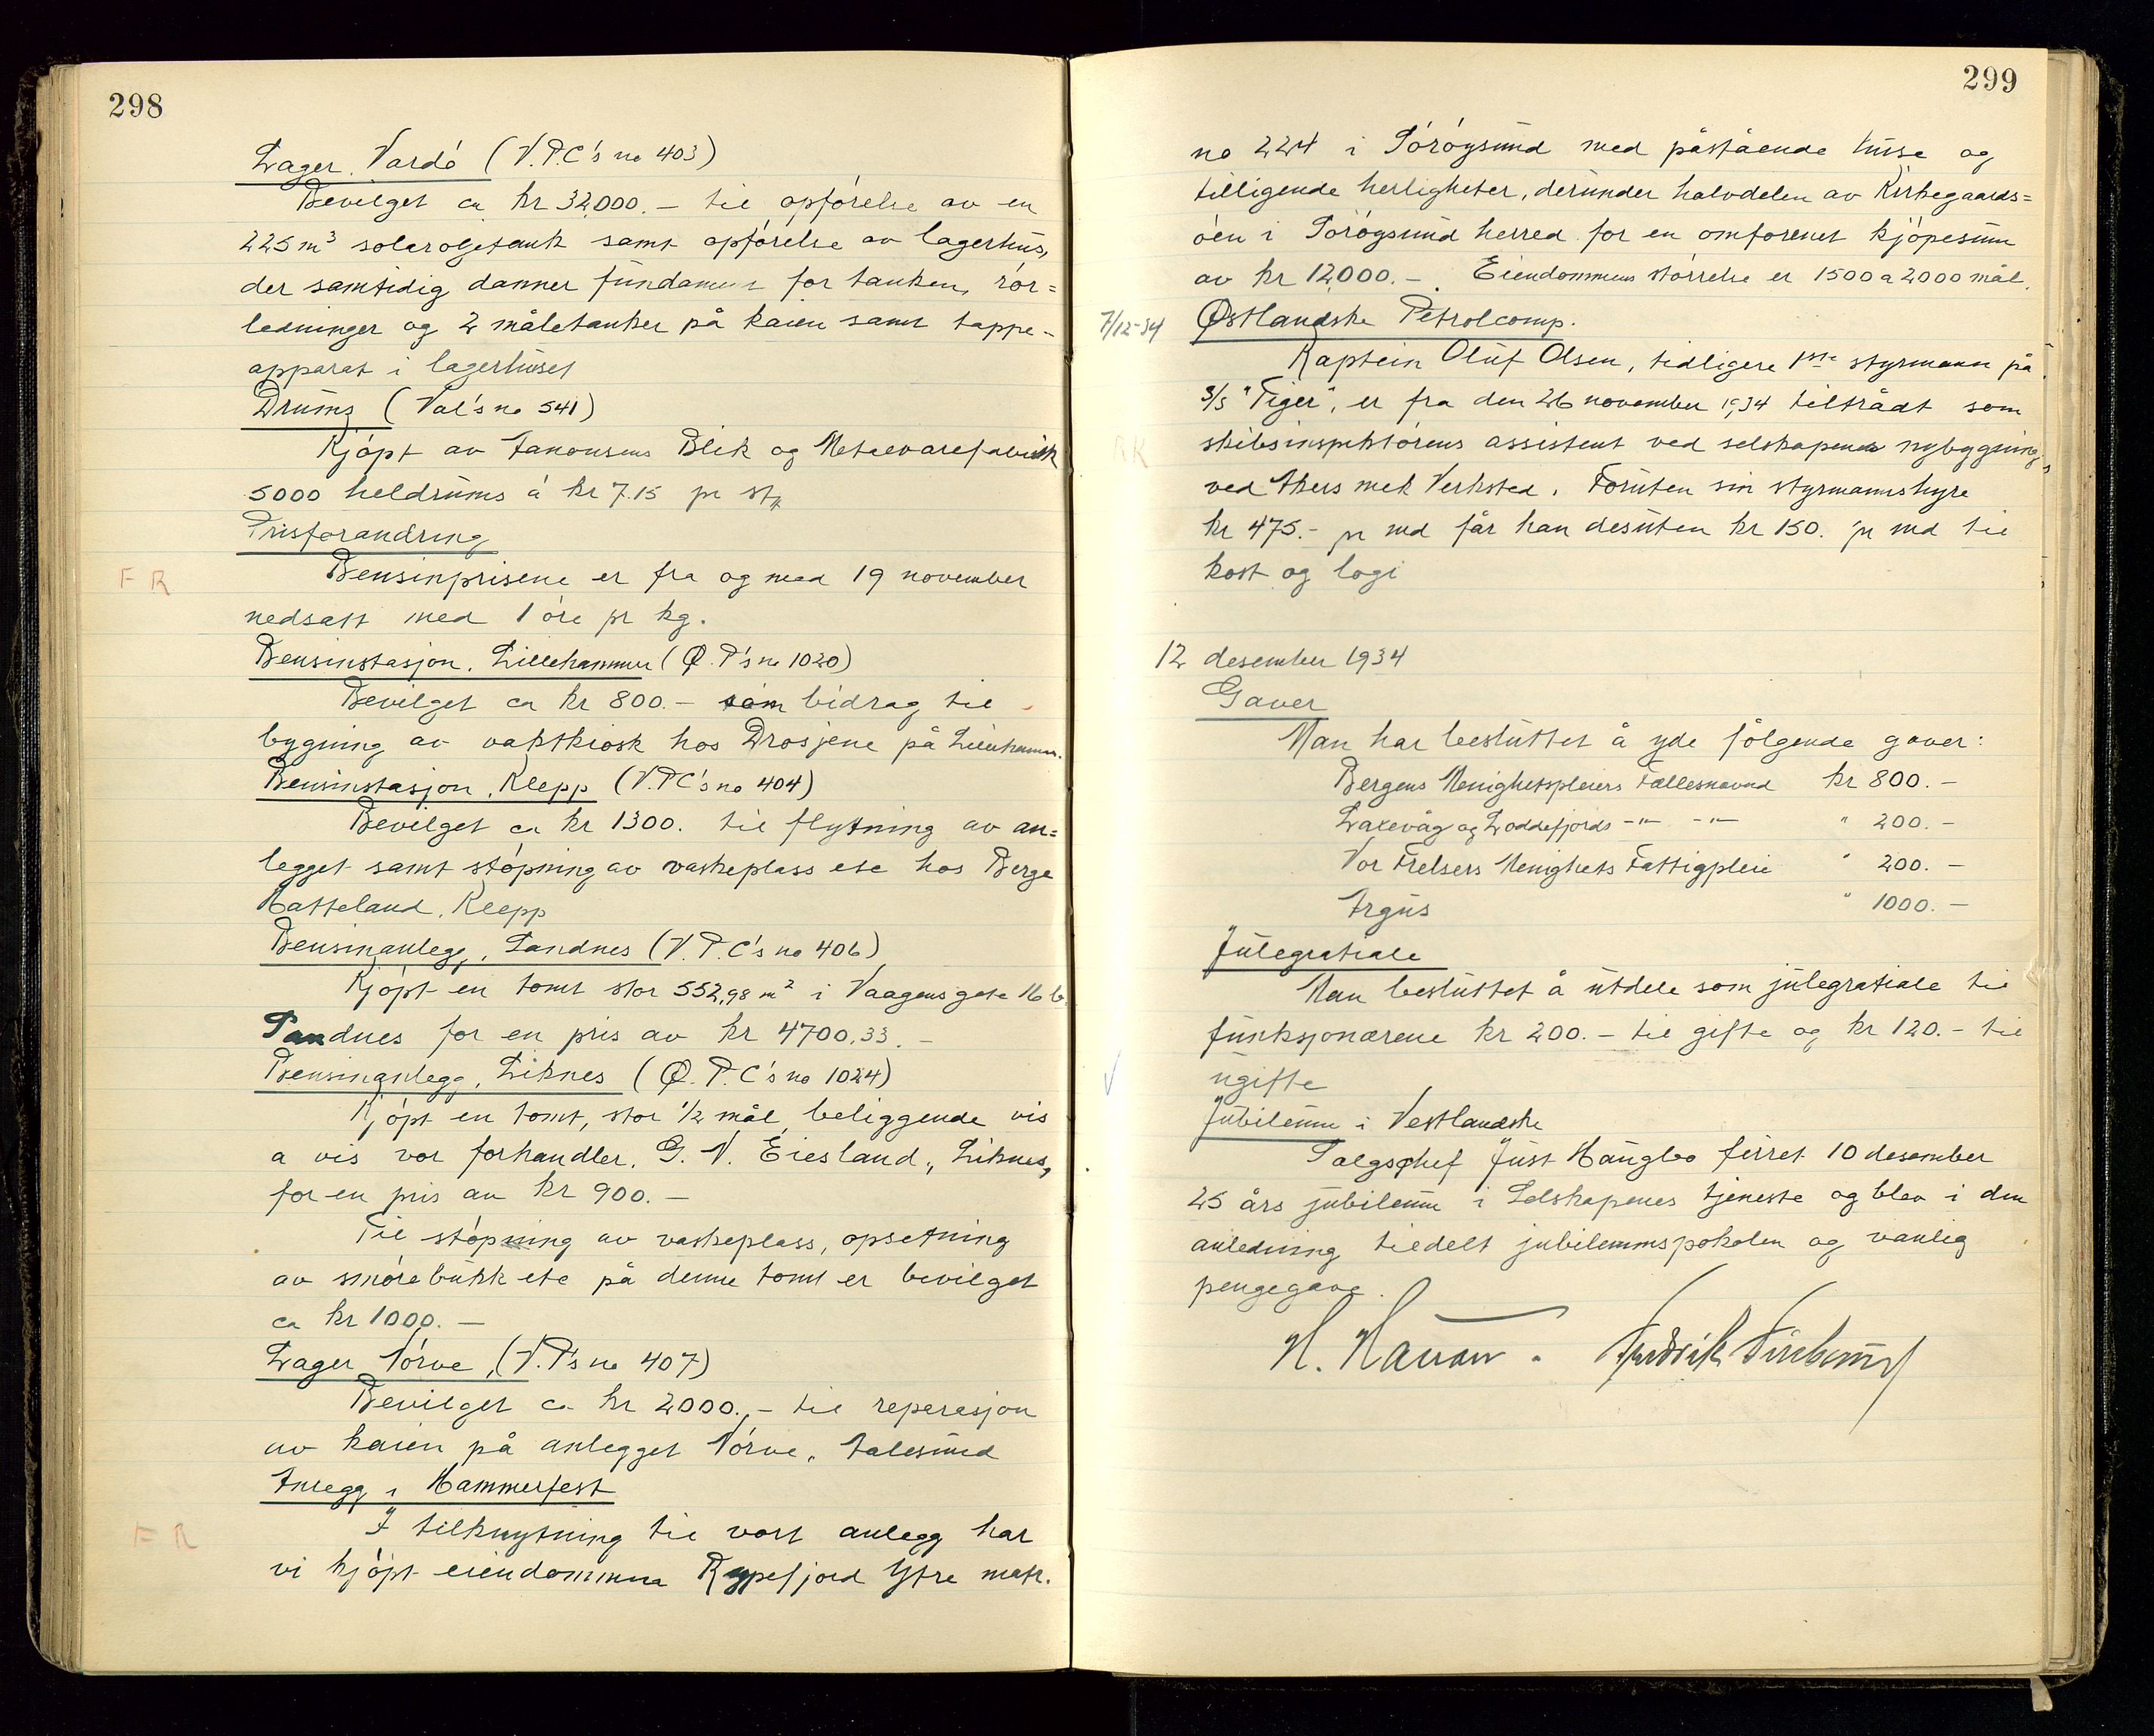 298
Lager, Vardö (V.P.C's no 403)
Bevilget ca kr 32,000.– til opförelse av en
225 m³ solaroljetank samt opförelse av lagerhus,
der samtidig danner fundament for tanken, rör=
ledninger og 2 måletanker på kaien samt tappe-
apparat i lagerhuset
Drums (Val's no 541)
Kjöpt av Aanonsens Blik og Metalvarefabrikk
5000 heldrums á kr 7.15 pr stk
Prisforandring
F R
Bensinprisene er fra og med 19 november
nedsatt med 1 öre pr kg.
Bensinstasjon, Lillehammer (Ø.P's no 1020)
Bevilget ca kr 800.– som bidrag til
bygning av vaktkiosk hos Drosjene på Lillehammer.
Bensinstasjon, Klepp (V.P.C's no 404)
Bevilget ca kr 1300. til flytning av an=
legget samt stöpning av vaskeplass etc hos Berge
Hatteland, Klepp
Bensinanlegg, Sandnes (V.P.C's no 406)
Kjöpt en tomt stor 552,98 m² i Vaagens gate 16 b.
Sandnes for en pris av kr 4700.33.–
Bensinanlegg, Liknes (Ø.P.C's no 1024)
Kjöpt en tomt, stor 1/2 mål, beliggende vis
a vis vor forhandler, G. V. Eiesland, Liknes,
for en pris av kr 900.–
Til stöpning av vaskeplass, opsetning
av smörebukk etc på denne tomt er bevilget
ca kr 1000.–
Lager Nörve, (V.P's no 407)
Bevilget ca kr 2000.,– til reparasjon
av kaien på anlegget Nörve, Aalesund
Anlegg i Hammerfest
F R
I tilknytning til vort anlegg har
vi kjöpt eiendommene Rypefjord Ytre matr.
299
no 224 i Söröysund med påstående huse og
tilligende herligheter, derunder halvdelen av Kirkegaards=
öen i Söröysund herred for en omforenet kjöpesum
av kr 12,000.–. Eiendommens störrelse er 1500 a 2000 mål.
7/12-34 Østlandske Petrolcomp.
Kaptein Oluf Olsen, tidligere 1ste styrmann på
S/S "Tiger", er fra den 26 november 1934 tiltrådt som
RK
skibsinspektörens assistent ved selskapenes nybygning
ved Akers mek Verksted. Foruten sin styrmannshyre
kr 475.– pr md får han desuten kr 150. pr md til
kost og logi
12 desember 1934
Gaver
Man har besluttet å yde fölgende gaver:
Bergens Menighetspleiers Fællesnevnd kr 800.–
Laxevåg og Loddefjords –"– –"– " 200.–
Vor Frelsers Menighets Fattigpleie " 200.–
Argus " 1000.–
Julegratiale
Man besluttet å utdele som julegratiale til
funksjonærene kr 200.– til gifte og kr 120.– til
ugifte
Jubileum i Vestlandske
Salgschef Just Haugbo feiret 10 desember
25 års jubileum i Selskapenes tjeneste og blev i den
anledning tildelt jubileumspokalen og vanlig
pengegave.